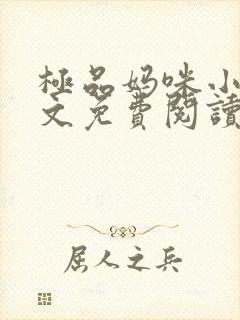 極品妈咪小
文免費閱讀
屈人之兵